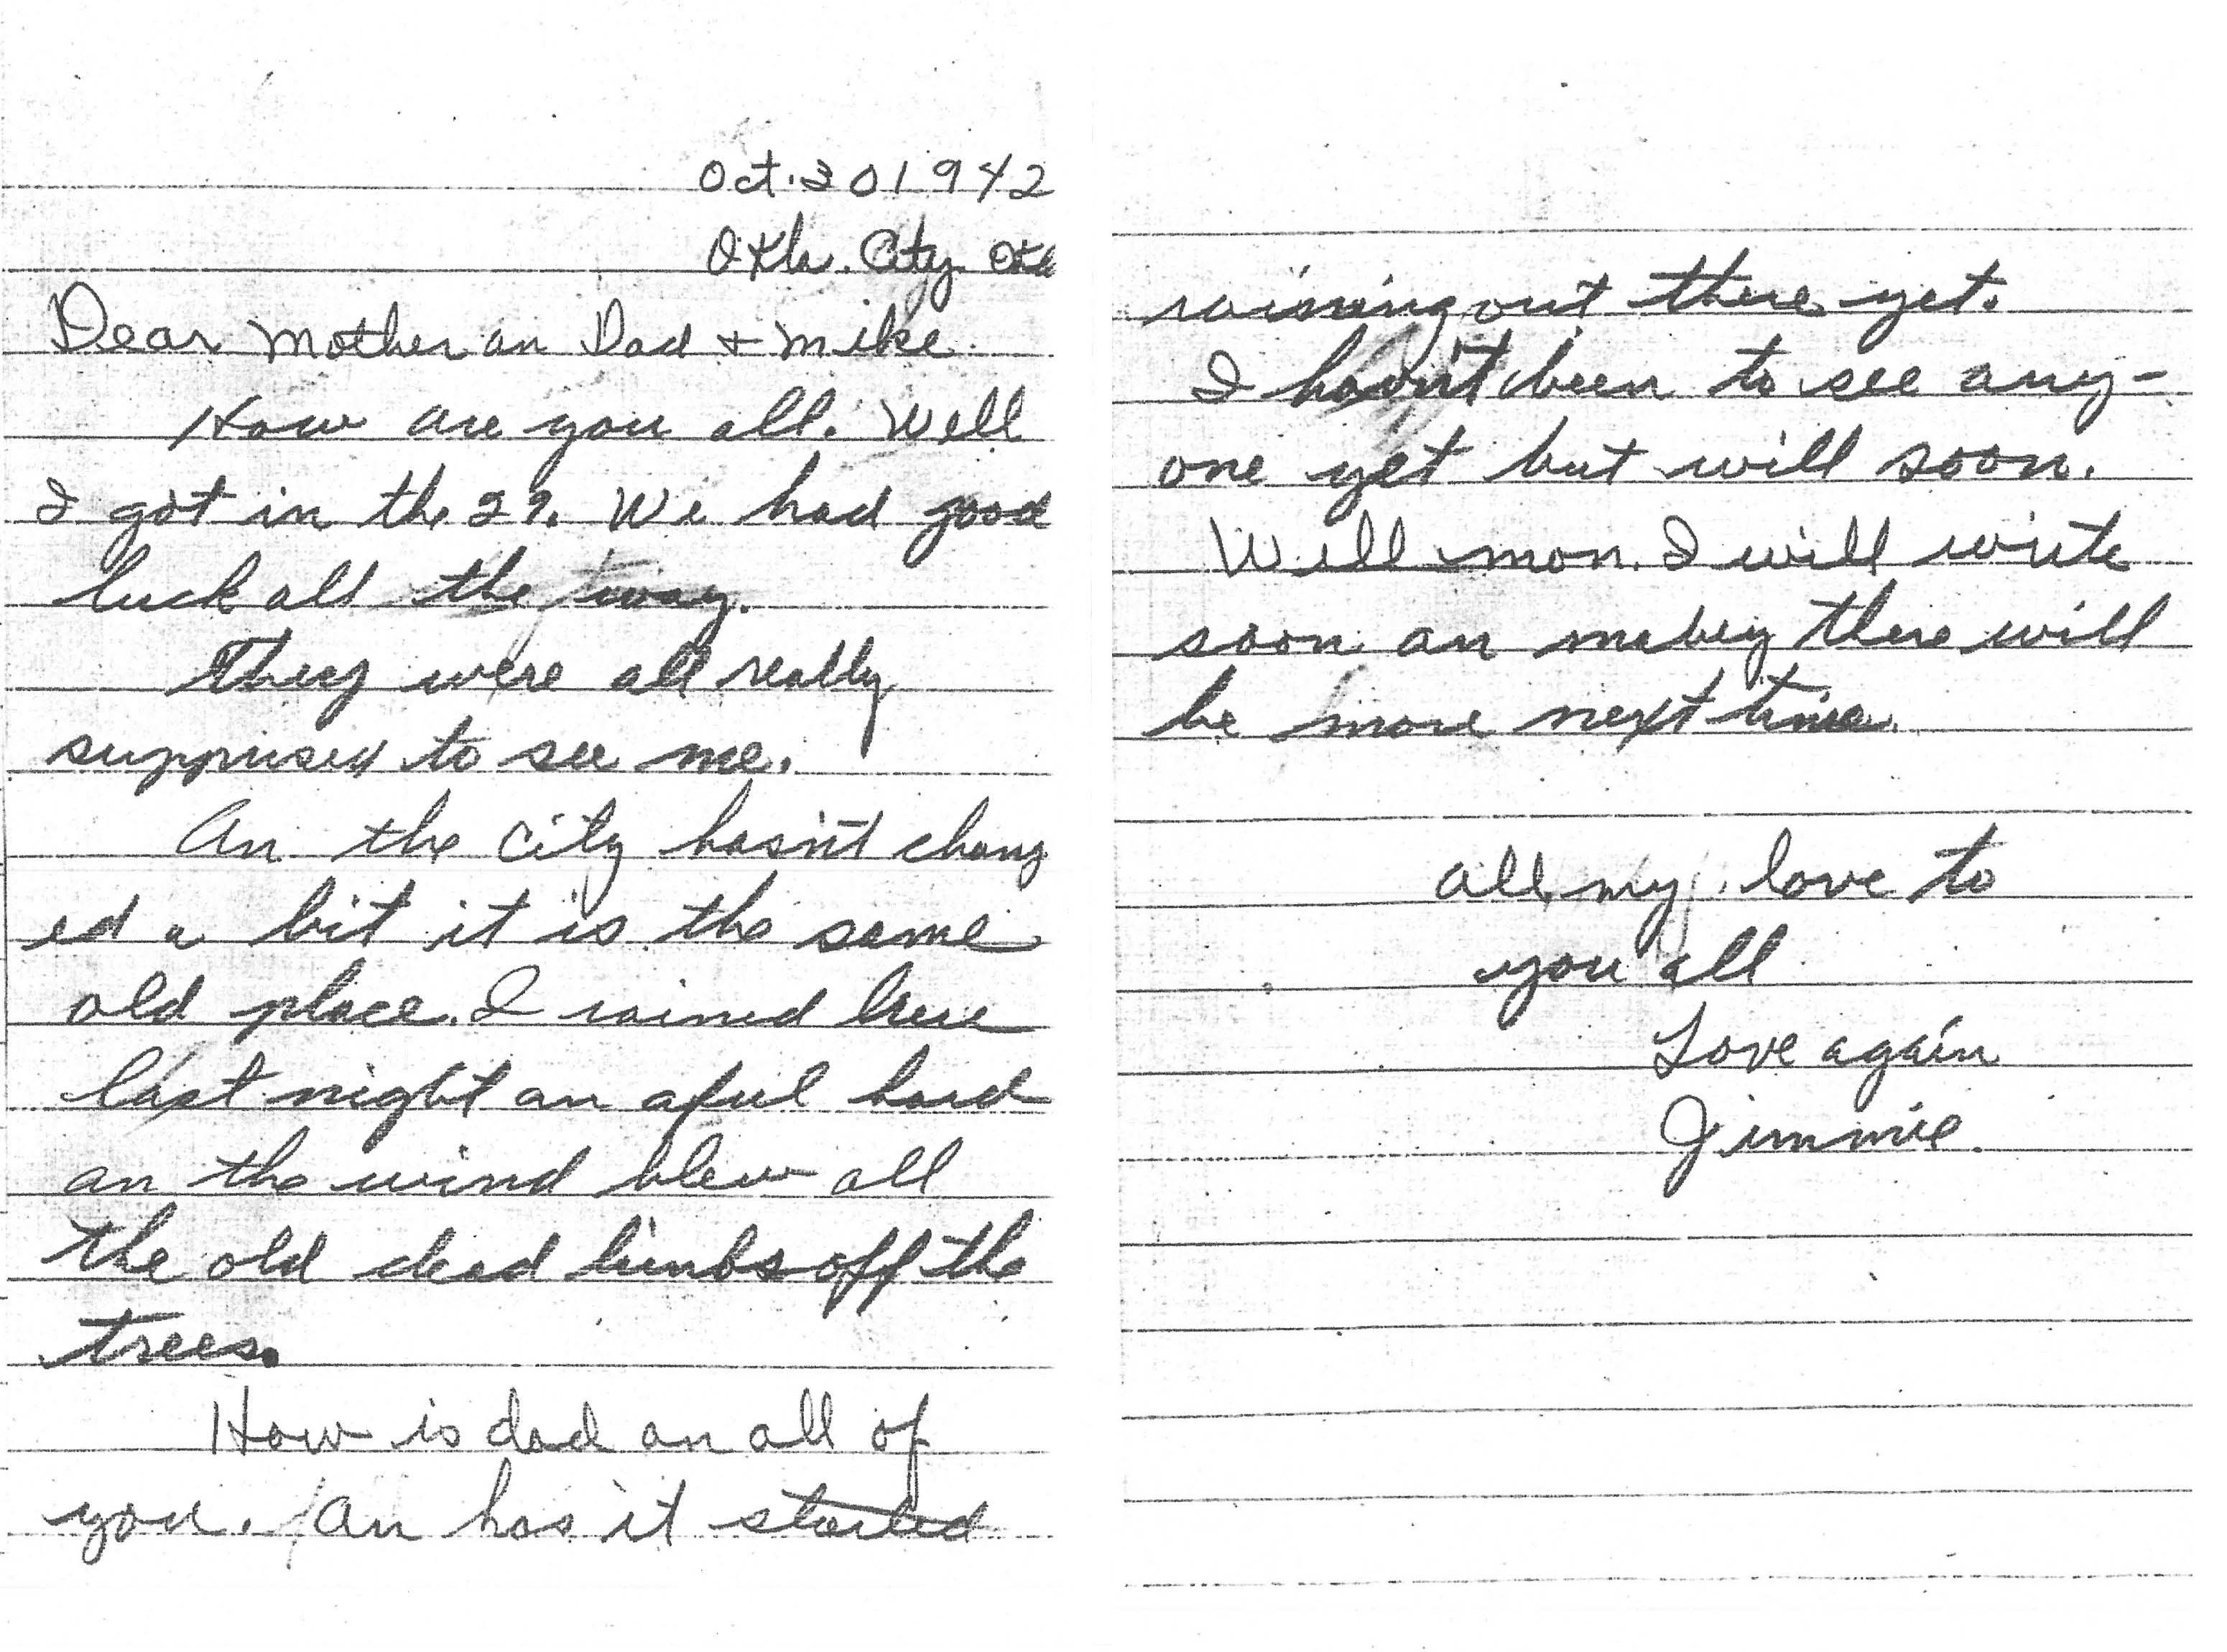 Oct. 30 1942
Okla. City. Okla
Dear Mother an Dad + Mike.
How are you all. Well
I got in the 29. We had good
luck all the way.
They were all really
supprised to see me.
An the city hasn't chang
ed a bit it is the same
old place. I rained here
last night an aful hard
an the wind blew all
the old dead limbs off the
trees.
How is dad an all of
you. An has it started
raining out there yet.
I havn't been to see any-
one yet but will soon.
Well mom. I will write
soon an mabey there will
be more next time.
all my love to
you all
Love again
Jimmie.